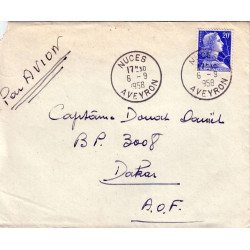 Par AVION
NUCES
17H30
6 - 9
1958
AVEYRON
NUCES
17H30
6 - 9
1958
AVEYRON
20F
Capitaine Donat Daniel
B.P. 3008
Dakar
A.O.F.